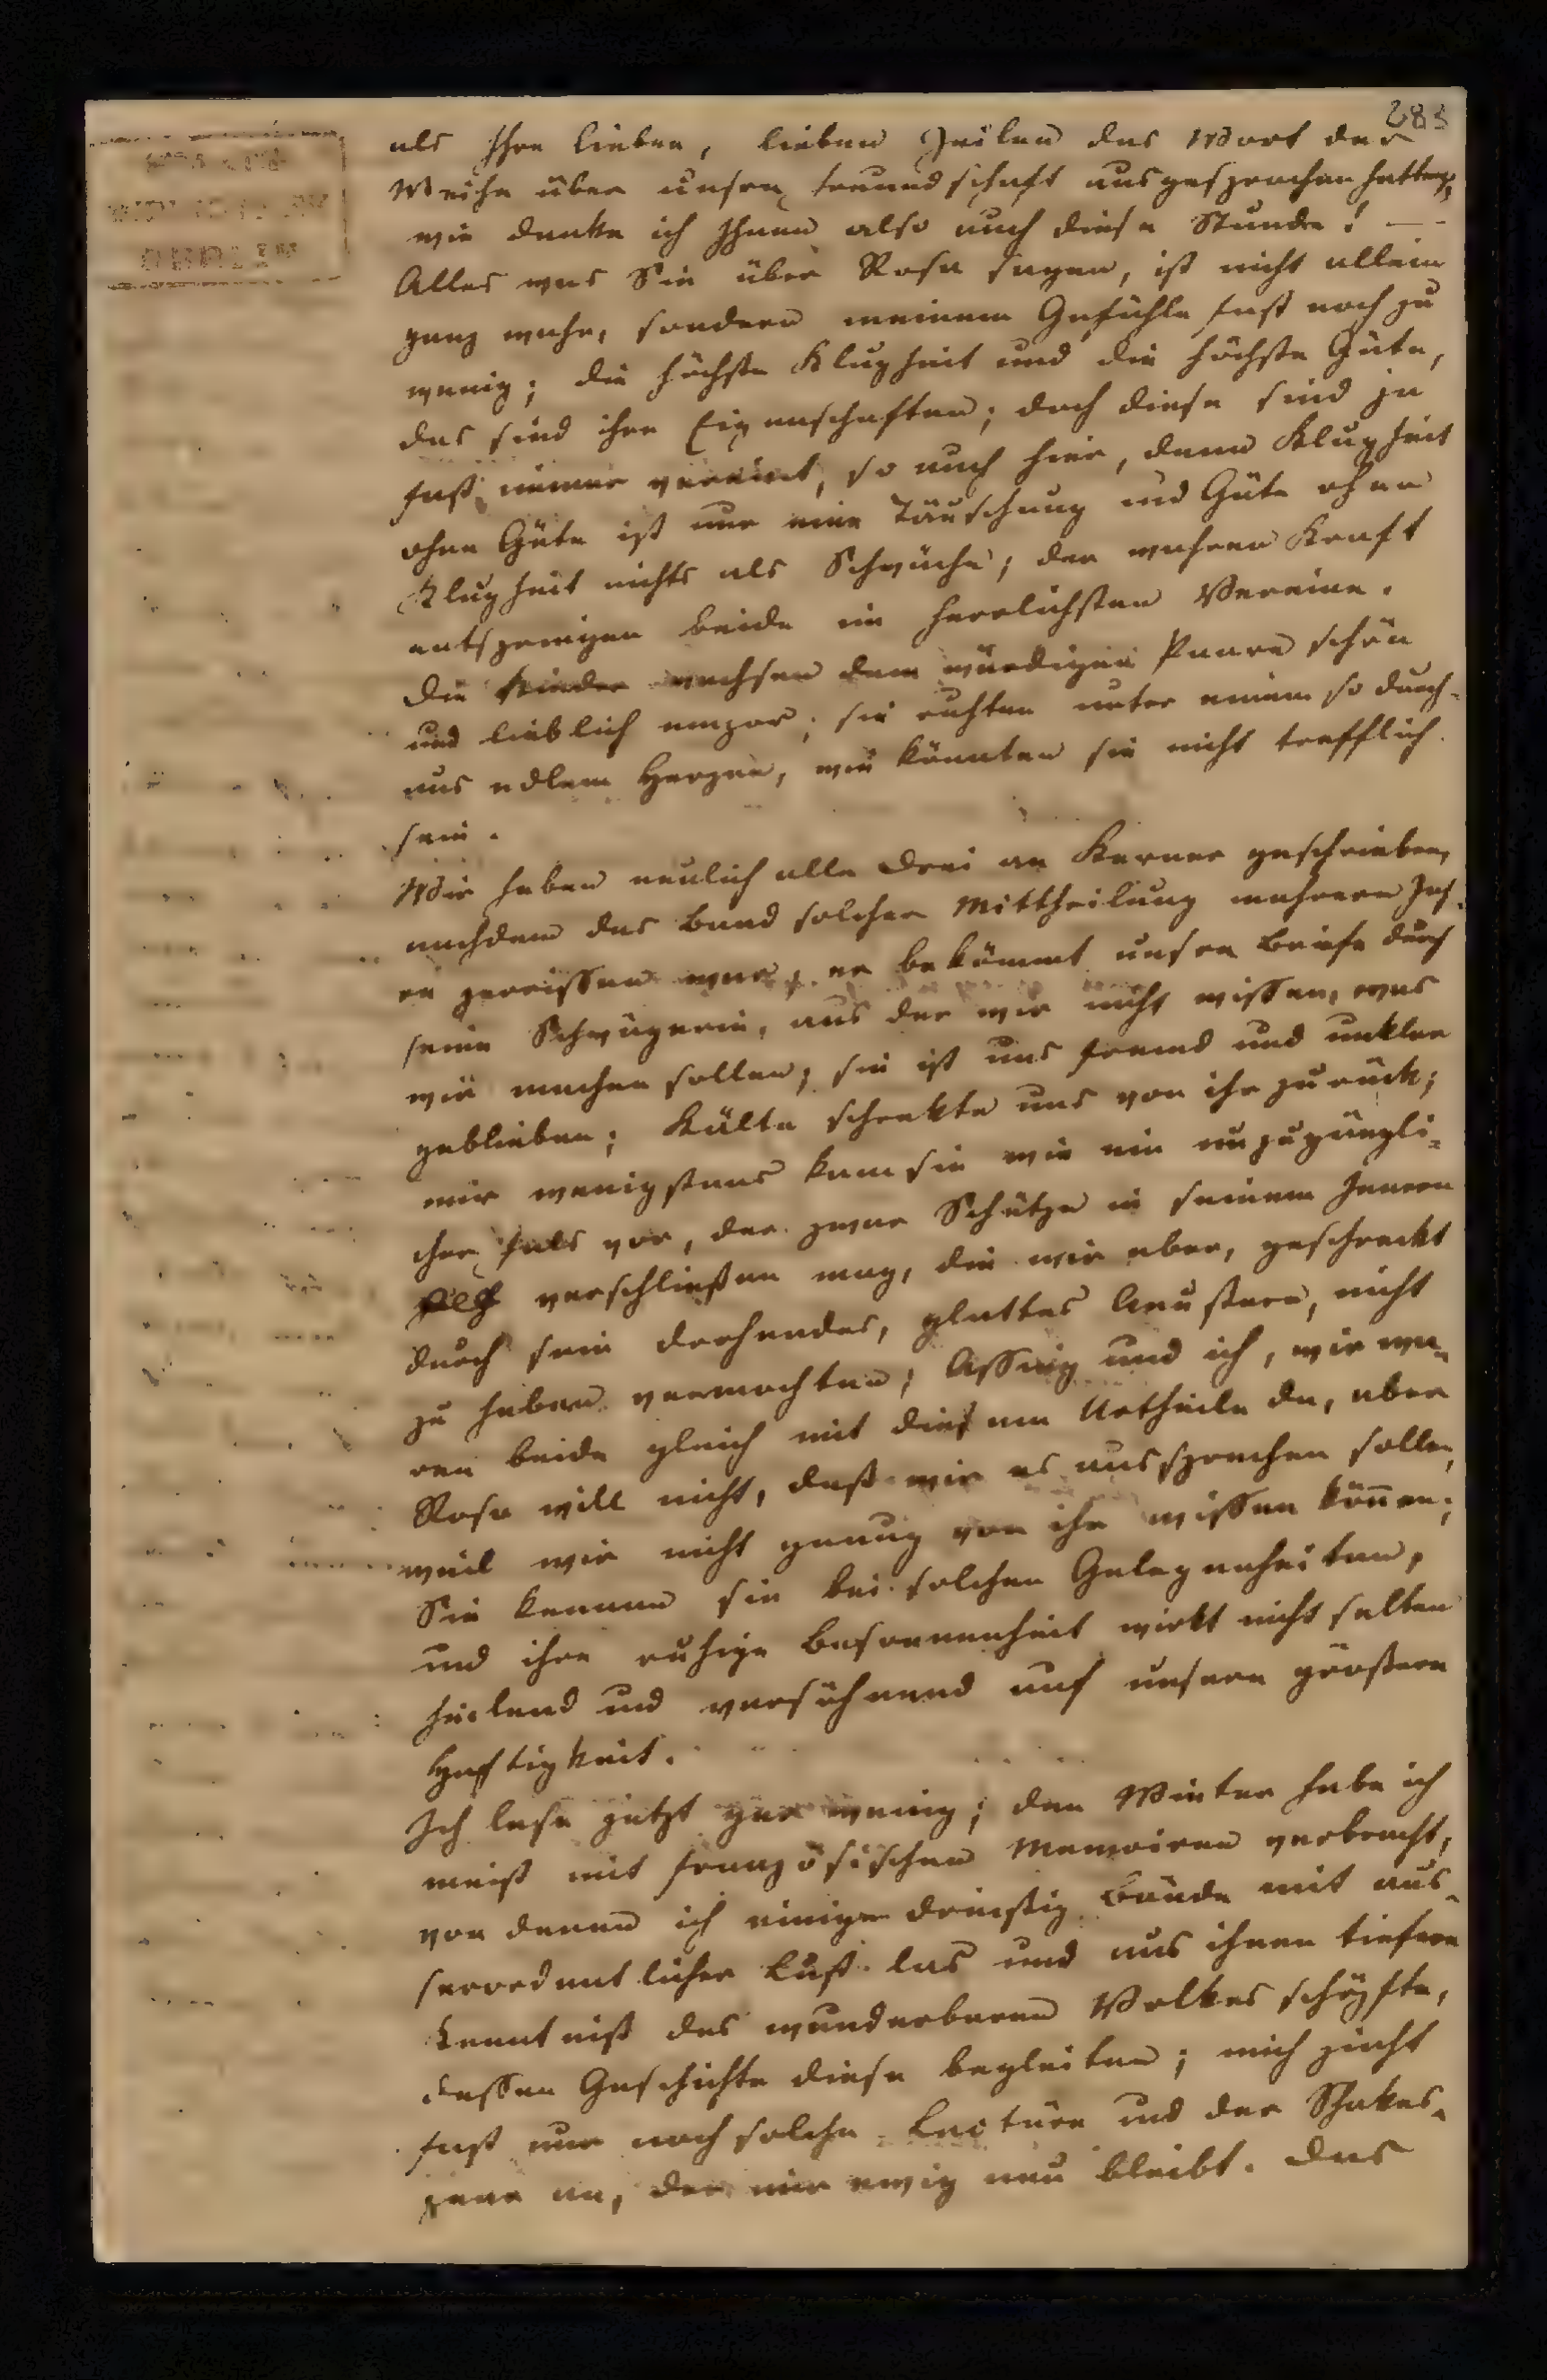 283
als Ihre lieben, lieben Zeilen das Wort der
Weihe über unsere Freundschaft ausgesprochen hatten;
wie danke ich Ihnen also auch diese Stunde! —
Alles was Sie über Rosa sagen, ist nicht allein
ganz wahr, sondern meinem Gefühle fast noch zu
wenig; die höchste Klugheit und die höchste Güte,
das sind ihre Eigenschaften; doch diese sind ja
fast immer vereint, so auch hier, denn Klugheit
ohne Güte ist nur eine Täuschung und Güte ohne
Klugheit nichts als Schwäche; der wahren Kraft
entspringen beide im herrlichsten Vereine.
Die Kinder wachsen dem würdigen Paare schön
und lieblich empor; sie ruhten unter einem so durch-
aus edlem Herzen, wie könnten sie nicht trefflich
sein.
Wir haben neulich alle drei an Kerner geschrieben,
nachdem das Band solcher Mittheilung mehrere Jah-
re zerrissen war; er bekömmt unsere Briefe durch
seine Schwägerin, aus der wir nicht wissen, was
wir machen sollen; sie ist uns fremd und unklar
geblieben; Kälte schrekte uns von ihr zurück;
mir wenigstens kam sie wie ein unzugängli-
cher Fels vor, der zwar Schätze in seinem Innern
verschließen mag, die wir aber, geschreckt
durch sein drohendes, glattes Aeußere, nicht
zu heben vermochten; Assing und ich, wir wa-
ren beide gleich mit diesem Urtheile da, aber
Rosa will nicht, daß wir es aussprechen sollen,
weil wir nicht genug von ihr wissen können;
Sie kennen sie bei solchen Gelegenheiten,
und ihre ruhige Besonnenheit wirkt nicht selten
heilend und versöhnend auf unsere größere
Heftigkeit.
Ich lese jetzt gar wenig; den Winter habe ich
meist mit französischen Memoiren verbracht,
von denen ich einige dreißig Bände mit aus-
serordentlicher Lust las und aus ihnen tiefere
Kenntniß des wunderbaren Volkes schöpfte,
dessen Geschichte diese begleiten; mich zieht
fast nur noch solche Lectüre und der Shakes-
peare an, der mir ewig neu bleibt. Das